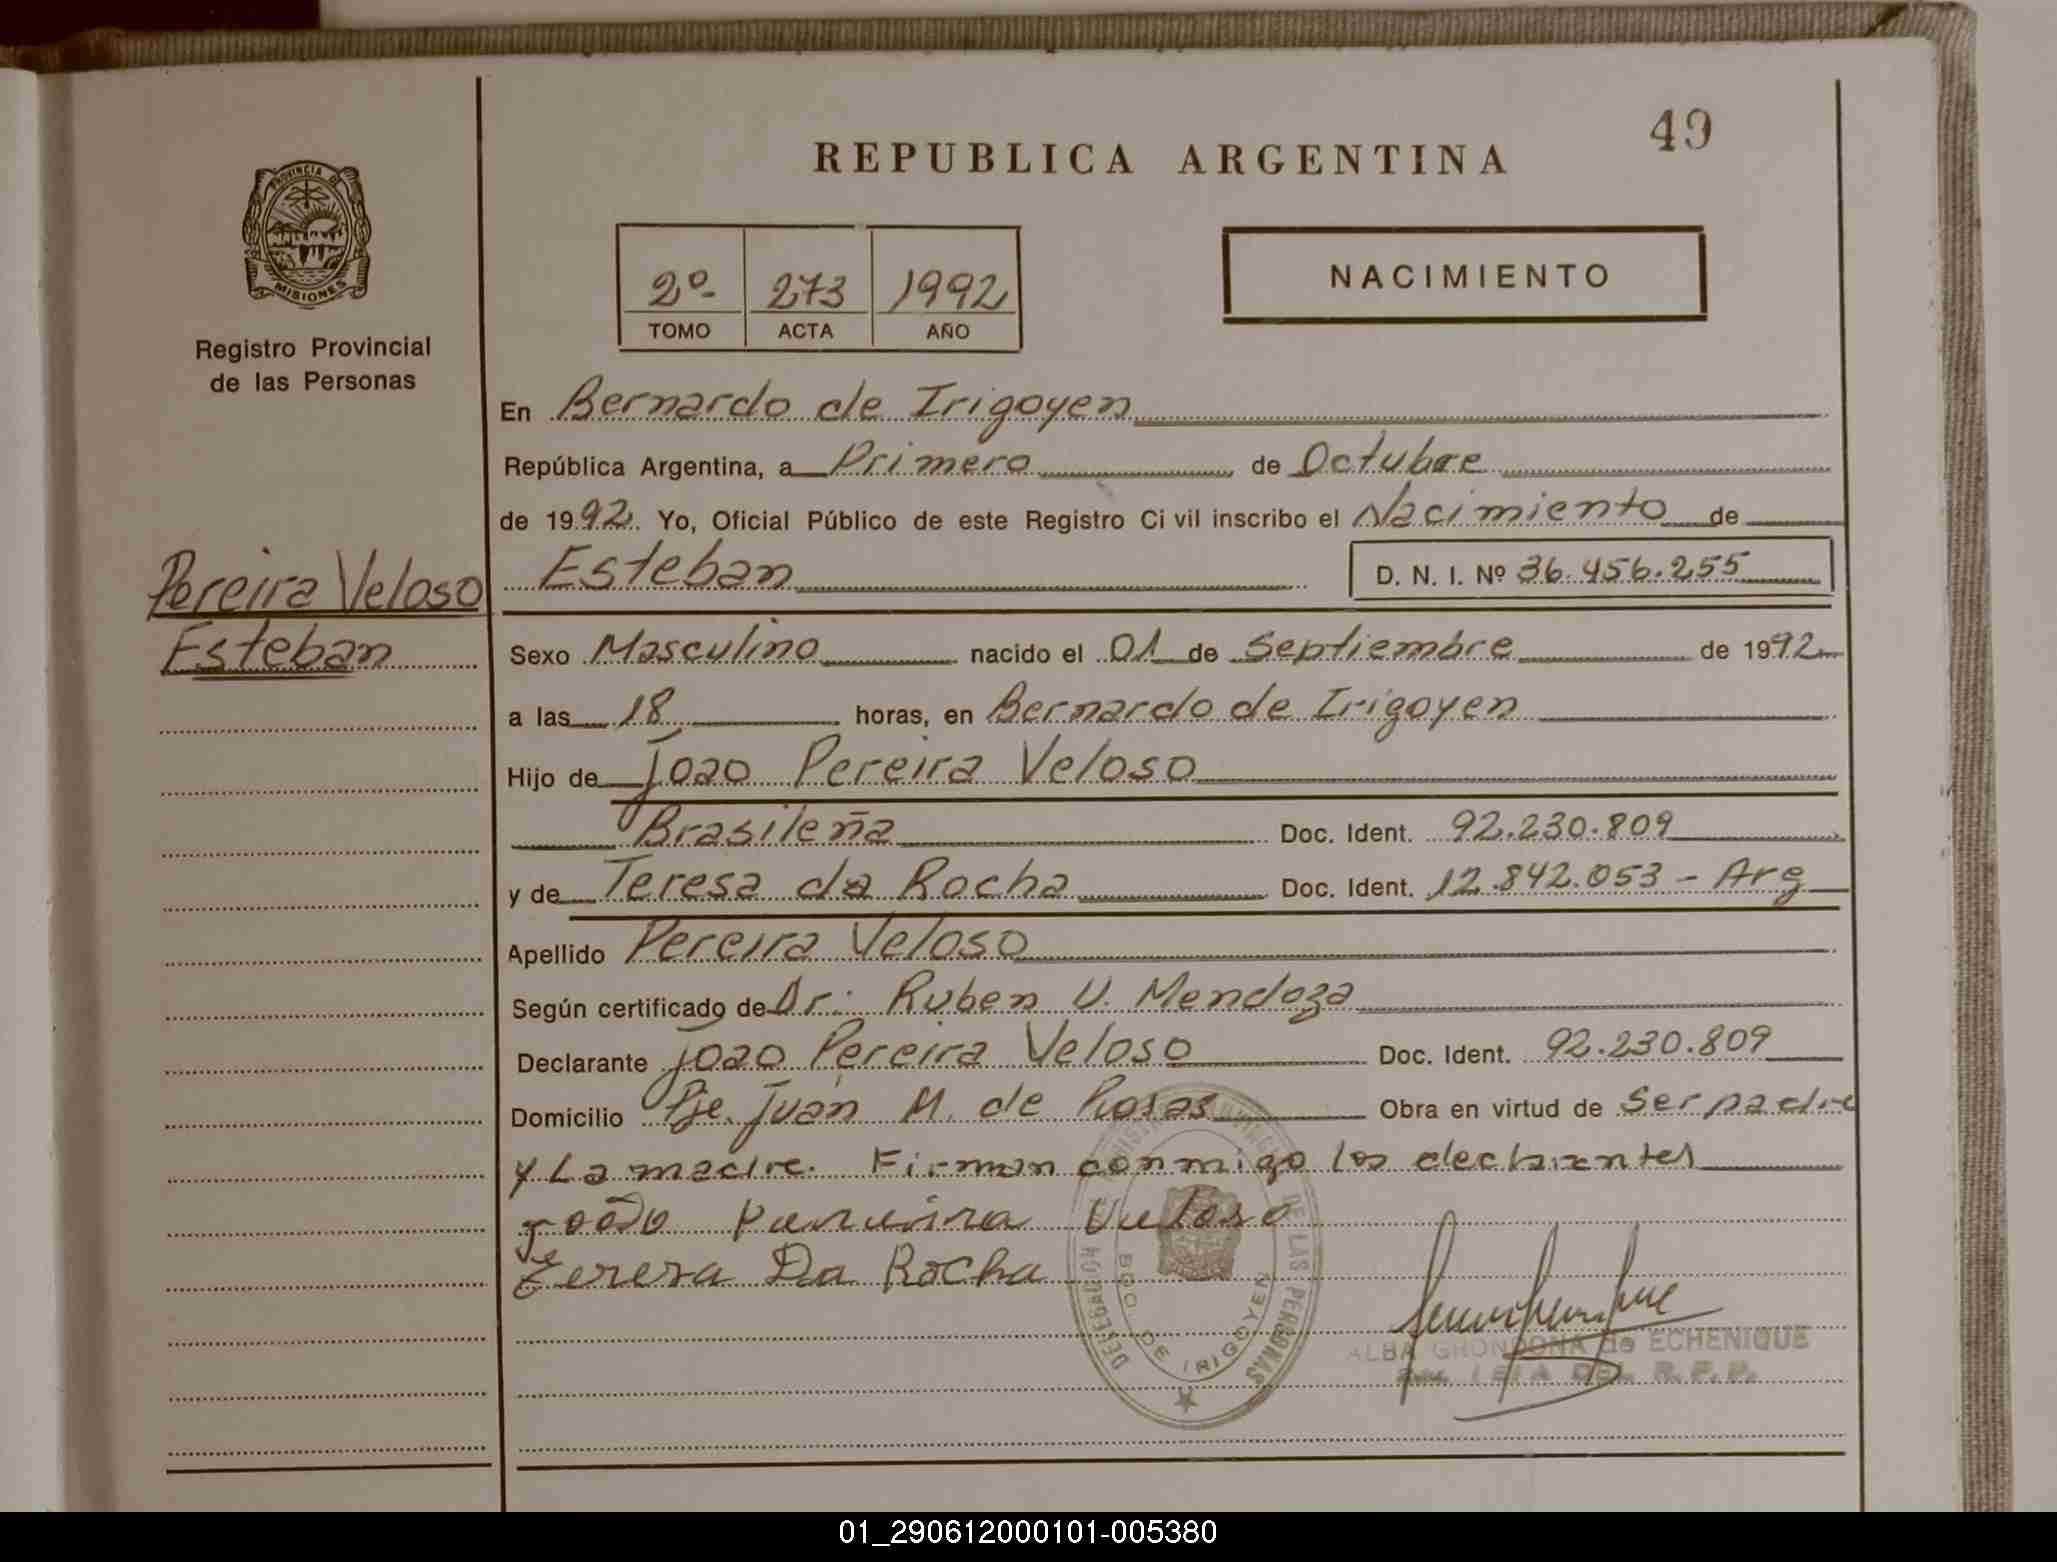 49
REPUBLICA ARGENTINA
PROVINCIA DE
MISIONES
Registro Provincial
de las Personas
2º 273 1992
TOMO ACTA AÑO
NACIMIENTO
En Bernardo de Irigoyen
República Argentina, a Primero de Octubre
de 1992. Yo, Oficial Público de este Registro Civil inscribo el Nacimiento de
Pereira Veloso
Esteban
Esteban D. N. I. Nº 36.456.255
Sexo Masculino nacido el 01 de Septiembre de 1992
a las 18 horas, en Bernardo de Irigoyen
Hijo de Joao Pereira Veloso
Brasileña Doc. Ident. 92.230.809
y de Teresa da Rocha Doc. Ident. 12.842.053 - Arg
Apellido Pereira Veloso
Según certificado de Dr: Ruben U. Mendoza
Declarante Joao Pereira Veloso Doc. Ident. 92.230.809
Domicilio Pje. Juan M. de Rosas Obra en virtud de Ser padre
y La madre. Firman conmigo los declarantes
João Pereira Veloso
Tereza Da Rocha
DELEGACION DE LAS PERSONAS
BDO. DE IRIGOYEN
ALBA GRONDONA de ECHENIQUE
DEL R.P.P.
01_290612000101-005380